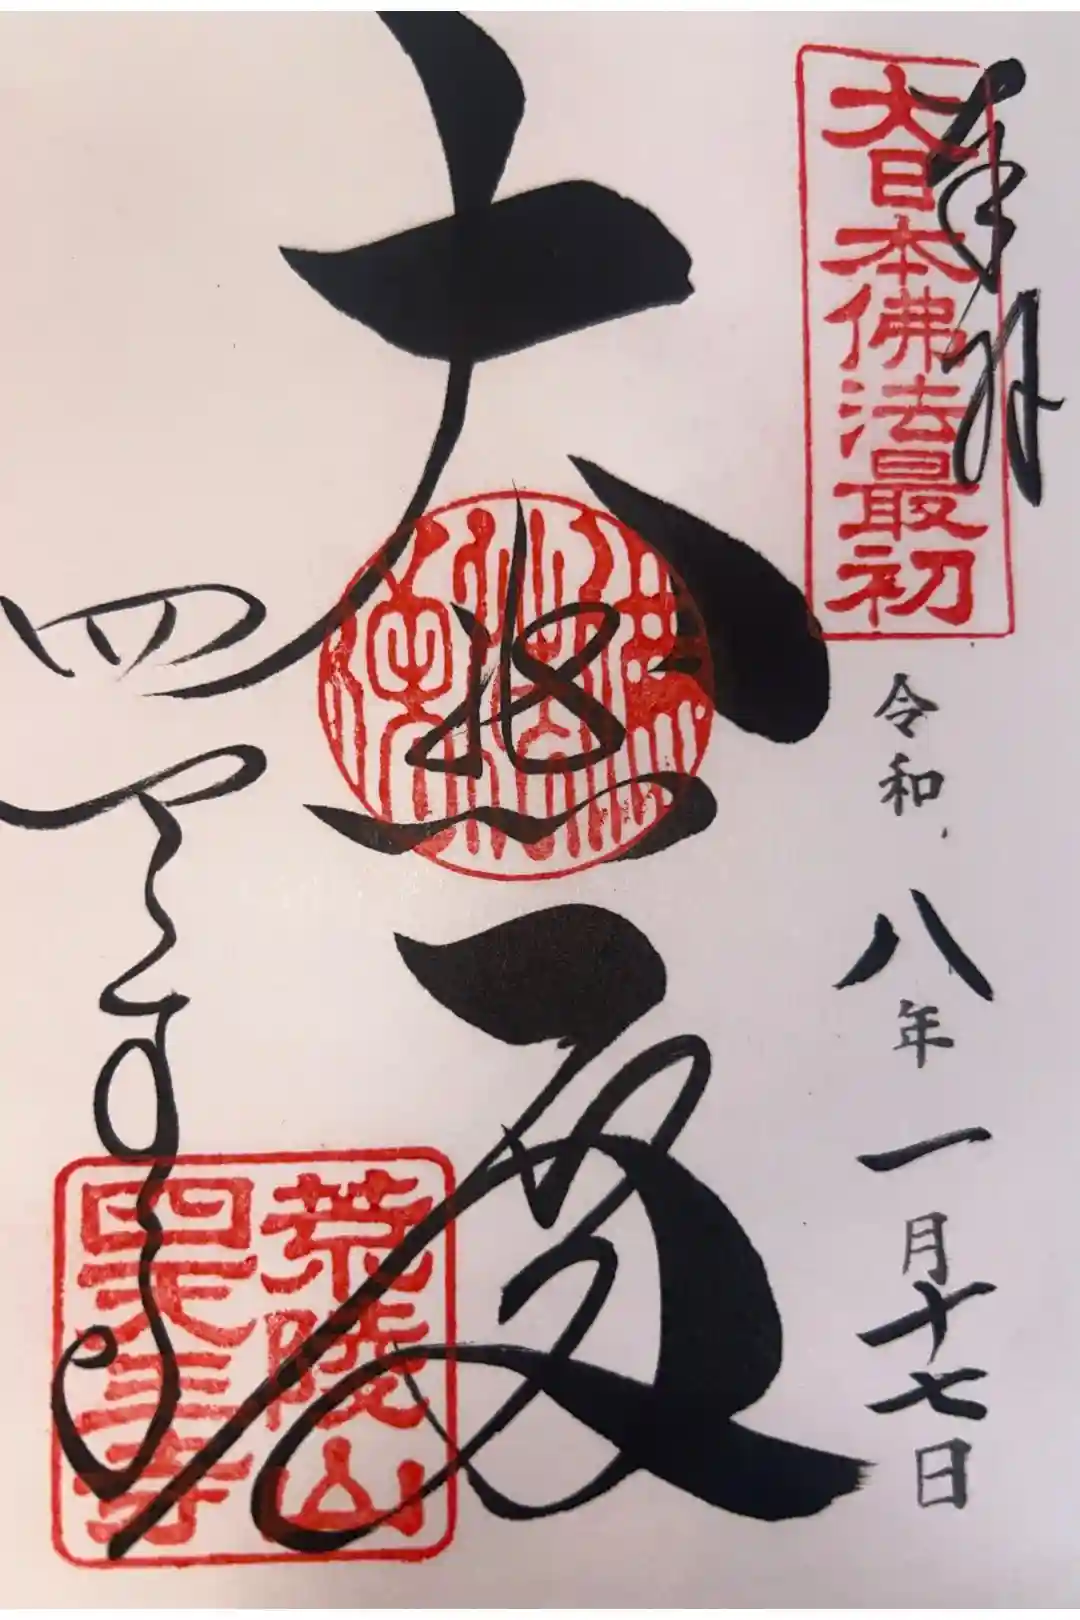 奉拝
大日本佛法最初
令和八年一月十七日
大悲殿
四天王寺
荒陵山
四天王寺